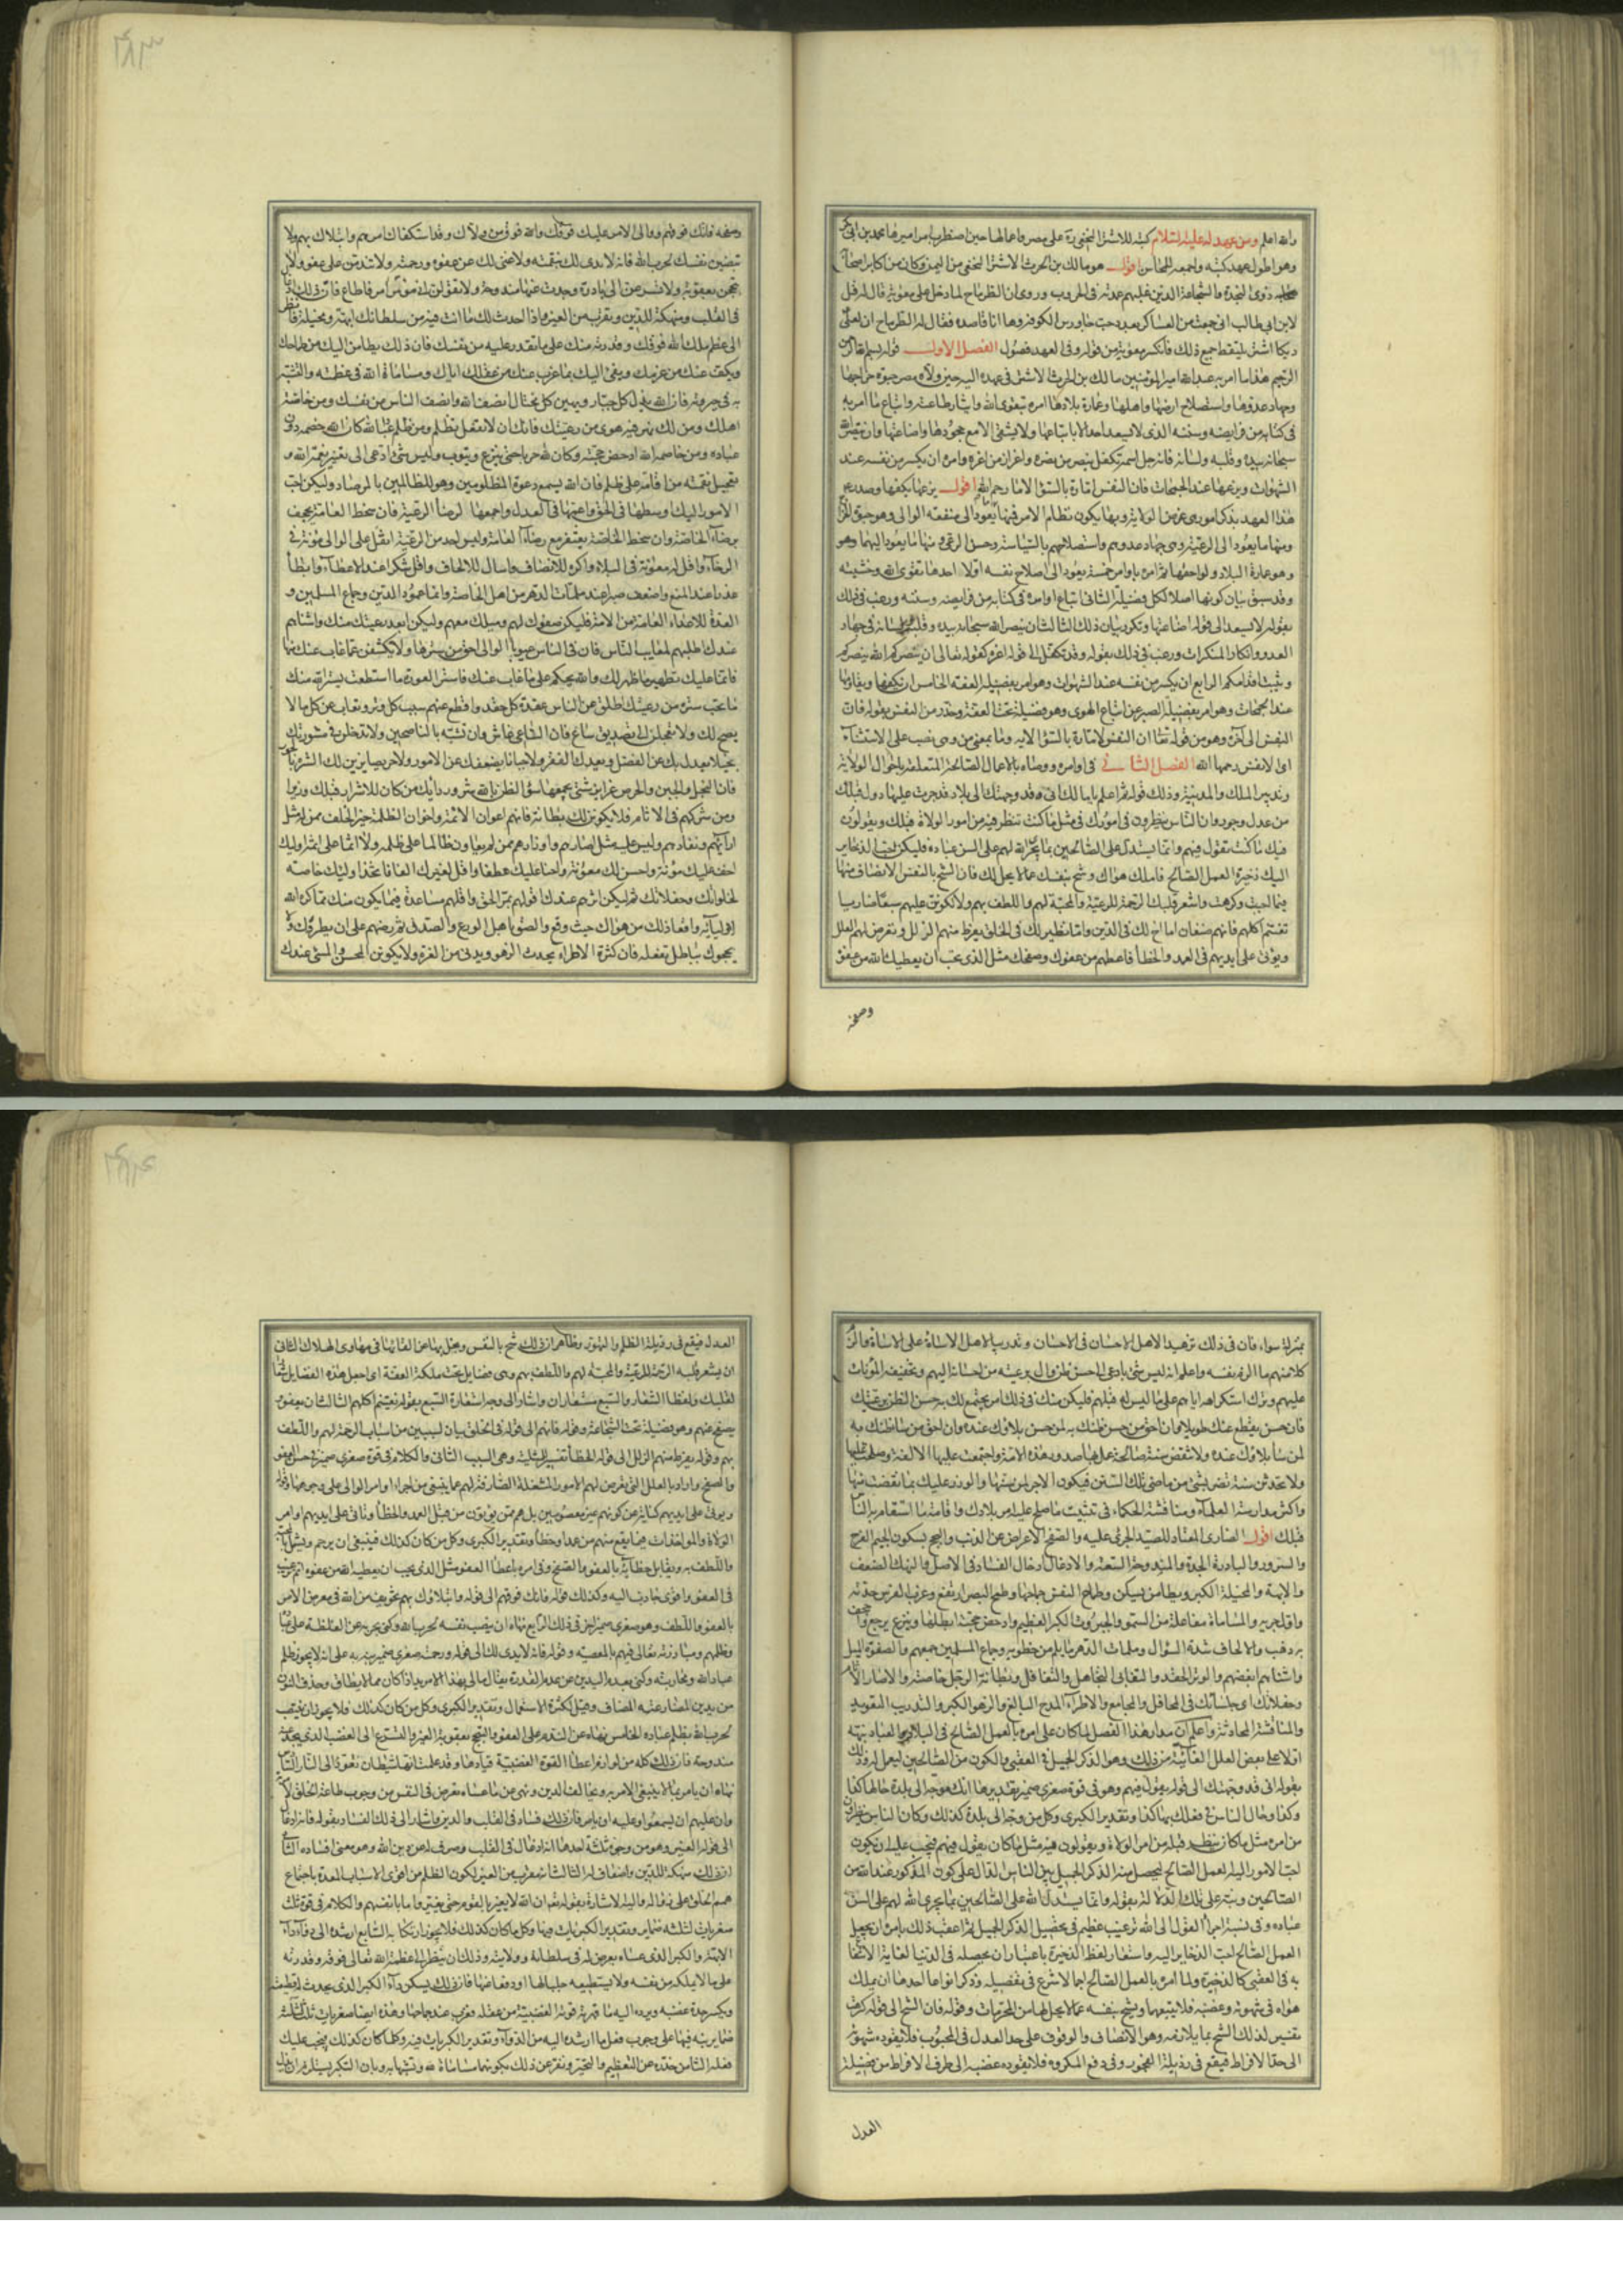 والله اعلم ومن عهد له عليه السلام كتبه للاشتر النخعي رة على مصر واعمالها حين اضطرب امر اميرها محمد بن ابي بكر
وهو اطول عهد كتبه واجمعه للمحاسن اقول هو مالك بن الحرث الاشتر النخعي من اليمن وكان من اكابر اصحابه
ذوى النجدة والشجاعة الذين عليهم عمدته فى الحروب وروى ان الطرماح لما دخل على معوية قال له قل
لابن ابي طالب انى جمعت من العساكر بعدد حب جاورس الكوفة وها انا قاصده فقال له الطرماح ان لعلى
ديكا اشتر يلتقط جميع ذلك فانكسر معوية من قوله وفى العهد فصول الفصل الاول قوله بسم الله الرحمن
الرحيم هذا ما امر به عبد الله امير المؤمنين مالك بن الحرث الاشتر فى عهده اليه حين ولاه مصر جبوة خراجها
وجهاد عدوها واستصلاح اهلها وعمارة بلادها امره بتقوى الله وايثار طاعته واتباع ما امر به
فى كتابه من فرايضه وسننه الذى لا يسعد احد الا باتباعها ولا يشقى الا مع جحودها واضاعتها وان ينصر الله
سبحانه بيده وقلبه ولسانه فانه جل اسمه تكفل بنصر من نصره واعزاز من اعزه وامره ان يكسر من نفسه عند
الشهوات ويزعها عند الجمحات فان النفس امارة بالسوء الا ما رحم الله اقول يزعها يكفها وصدر
هذا العهد بذكر امور هى غرض الولاية وبها يكون نظام الامر فمنها ما يعود الى منفعة الوالى وهو جبوة الخراج
ومنها ما يعود الى الرعية وهى جهاد عدوهم واستصلاحهم بالسياسة وحسن الرعى ومنها ما يعود اليهما وهو
وهو عمارة البلاد ولواحقها ثم امره باوامر خمسة يعود الى اصلاح نفسه اولا احدها تقوى الله وخشيته
وقد سبق بيان كونها اصلا لكل فضيلة الثانى اتباع اوامره فى كتابه من فرايضه وسننه ورغب فى ذلك
بقوله لا يسعد الى قوله اضاعتها وتكرر بيان ذلك الثالث ان ينصر الله سبحانه بيده وقلبه ولسانه فى جهاد
العدو وانكار المنكرات ورغب فى ذلك بقوله وقد تكفل الى قوله اعزه كقوله تعالى ان ينصركم الله ينصركم
ويثبت اقدامكم الرابع ان يكسر من نفسه عند الشهوات وهو امر بفضيلة العفة الخامس ان يكفها ويقاومها
عند الجمحات وهو امر بفضيلة الصبر عن اتباع الهوى وهو فضيلة تحت العفة وحذر من النفس بقوله فان
النفس الى آخره وهو من قوله تعالى ان النفس لامارة بالسوء الايه وما بمعنى من وهى نصب على الاستثناء
اى الا نفس رحمها الله الفصل الثانى فى اوامره ووصاه بالاعمال الصالحة المتعلقة باحوال الولاية
وتدبير الملك والمدينة وذلك قوله ثم اعلم يا مالك انى قد وجهتك الى بلاد قد جرت عليها دول قبلك
من عدل وجور وان الناس ينظرون فى امورك فى مثل ما كنت تنظر فيه من امور الولاة قبلك ويقولون
فيك ما كنت تقول فيهم وانما يستدل على الصالحين بما يجرى الله لهم على السن عباده فليكن احب الذخاير
اليك ذخيرة العمل الصالح فاملك هواك وشح بنفسك عما لا يحل لك فان الشح بالنفس الانصاف منها
فيما احببت وكرهت واشعر قلبك الرحمة للرعية والمحبة لهم واللطف بهم ولا تكونن عليهم سبعا ضاريا
تغتنم اكلهم فانهم صنفان اما اخ لك فى الدين واما نظير لك فى الخلق يفرط منهم الزلل وتعرض لهم العلل
ويؤتى على ايديهم فى العمد والخطأ فاعطهم من عفوك وصفحك مثل الذى تحب ان يعطيك الله من عفوه
وصفحه
وصفحه فانك فوقهم ووالى الامر عليك فوقك والله فوق من ولاك وقد استكفاك امرهم وابتلاك بهم ولا
تنصبن نفسك لحرب الله فانه لا يدى لك بنقمته ولا غنى لك عن عفوه ورحمته ولا تندمن على عفو ولا
تبجحن بعقوبة ولا تسرعن الى بادرة وجدت عنها مندوحة ولا تقولن انى مؤمر آمر فاطاع فان ذلك ادغال
فى القلب ومنهكة للدين وتقرب من الغير واذا احدث لك ما انت فيه من سلطانك ابهة او مخيلة فانظر
الى عظم ملك الله فوقك وقدرته منك على ما لا تقدر عليه من نفسك فان ذلك يطامن اليك من طماحك
ويكف عنك من غربك ويفئ اليك بما عزب عنك من عقلك اياك ومساماة الله فى عظمته والتشبه
به فى جبروته فان الله يذل كل جبار ويهين كل مختال انصف الله وانصف الناس من نفسك ومن خاصة
اهلك ومن لك فيه هوى من رعيتك فانك ان لا تفعل تظلم ومن ظلم عباد الله كان الله خصمه دون
عباده ومن خاصمه الله ادحض حجته وكان لله حربا حتى ينزع ويتوب وليس شئ ادعى الى تغيير نعمة الله و
تعجيل نقمته من اقامة على ظلم فان الله يسمع دعوة المظلومين وهو للظالمين بالمرصاد وليكن احب
الامور اليك اوسطها فى الحق واعمها فى العدل واجمعها لرضا الرعية فان سخط العامة يجحف
برضاء الخاصة وان سخط الخاصة يغتفر مع رضاء العامة وليس احد من الرعية اثقل على الوالى مؤنة فى
الرخاء واقل له معونة فى البلاء واكره للانصاف واسال للالحاف واقل شكرا عند الاعطاء وابطأ
عذرا عند المنع واضعف صبرا عند ملمات الدهر من اهل الخاصة وانما عمود الدين وجماع المسلمين و
العدة للاعداء العامة من الامة فليكن صغوك لهم وميلك معهم وليكن ابعد رعيتك منك واشناهم
عندك اطلبهم لمعايب الناس فان فى الناس عيوبا الوالى احق من سترها ولا تكشفن عما غاب عنك منها
فانما عليك تطهير ما ظهر لك والله يحكم على ما غاب عنك فاستر العورة ما استطعت يستر الله منك
ما تحب ستره من رعيتك اطلق عن الناس عقدة كل حقد واقطع عنهم سبب كل وتر وتغاب عن كل ما لا
يصح لك ولا تعجلن الى تصديق ساع فان الساعى غاش وان تشبه بالناصحين ولا تدخلن فى مشورتك
بخيلا يعدل بك عن الفضل ويعدك الفقر ولا جبانا يضعفك عن الامور ولا حريصا يزين لك الشره بالجور
فان البخل والجبن والحرص غرايز شتى يجمعها سوء الظن بالله شر وزرائك من كان للاشرار قبلك وزيرا
ومن شركهم فى الاثام فلا يكونن لك بطانة فانهم اعوان الاثمة واخوان الظلمة وانت واجد منهم خير الخلف ممن له مثل
ارائهم ونفاذهم وليس عليه مثل اصارهم واوزارهم ممن لم يعاون ظالما على ظلمه ولا اثما على اثمه اوليك
اخف عليك مؤنة واحسن لك معونة واحنا عليك عطفا واقل لغيرك الفا فاتخذ اوليك خاصة
لخلواتك وحفلاتك ثم ليكن اثرهم عندك اقولهم بمر الحق واقلهم مساعدة فيما يكون منك مما كره الله
لاوليائه واقعا ذلك من هواك حيث وقع والصق باهل الورع والصدق ثم رضهم على ان لا يطروك ولا
يبجحوك بباطل لم تفعله فان كثرة الاطراء تحدث الزهو وتدنى من الغرة ولا يكونن المحسن والمسئ عندك
بمنزلة سواء فان فى ذلك تزهيدا لاهل الاحسان فى الاحسان وتدريبا لاهل الاساءة على الاساءة والزم
كلا منهم ما الزم نفسه واعلم انه ليس شئ بادعى الى حسن ظن وال برعيته من احسانه اليهم وتخفيفه المؤنات
عليهم وترك استكراهه اياهم على ما ليس له قبلهم فليكن منك فى ذلك امر يجتمع لك به حسن الظن برعيتك
فان حسن الظن يقطع عنك نصبا طويلا وان احق من حسن ظنك به لمن حسن بلاؤك عنده وان احق من ساء ظنك به
لمن ساء بلاؤك عنده ولا تنقض سنة صالحة عمل بها صدور هذه الامة واجتمعت عليها الالفة وصلحت عليها
ولا تحدثن سنة تضر بشئ من ماضى تلك السنن فيكون الاجر لمن سنها والوزر عليك بما نقضت منها
واكثر مدارسة العلماء ومناقشة الحكماء فى تثبيت ما صلح عليه امر بلادك واقامة ما استقام به الناس
قبلك اقول الضارى المعتاد للصيد الجرى عليه والصفح الاعراض عن الذنب والبجح بسكون الجيم الفرح
والسرور والبادرة الحدة والمندوحة السعة والادغال ادخال الفساد فى الاصل والنهك الضعف
والابهة والمخيلة الكبر ويطامن يسكن وطماح النفس جماحها وطمح البصر ارتفع وغرب الفرس حدته
واول جريه والمساماة مفاعلة من السمو والجبروت الكبر العظيم وادحض حجته ابطلها وينزع يرجع واجحف
به ذهب والالحاف شدة السؤال وملمات الدهر ما يلم من خطوبه وجماع المسلمين جمعهم والصغو الميل
واشناهم ابغضهم والوتر الحقد والتغابى التجاهل والتغافل وبطانة الرجل خاصته والاصار الاثام
وحفلاتك اى جلساتك فى المحافل والمجامع والاطراء المدح البالغ والزهو الكبر والتدريب التعويد
والمناقشة المحادثة واعلم ان مدار هذا الفصل لما كان على امره بالعمل الصالح فى البلاد والعباد نبه
اولا على بعض العلل الغائية من ذلك وهو الذكر الجميل فى العقبى والكون من الصالحين ليعمل له وذلك
بقوله انى قد وجهتك الى قوله يقول فيهم وهو فى قوة صغرى ضمير تقديرها انك موجه الى بلدة حالها كذا
وكذا وحال الناس فى فعلك بها كذا وتقدير الكبرى وكل من وجه الى بلدة كذلك وكان الناس ينظرون
من امره مثل ما كان ينظر قبله من امر الولاة ويقولون فيه مثل ما كان يقول فيهم فيجب عليه ان يكون
احب الامور اليه العمل الصالح ليحصل منه الذكر الجميل بين الناس الدال على كون المذكور عند الله من
الصالحين ونبه على تلك الدلالة بقوله وانما يستدل على الصالحين بما يجرى الله لهم على السن
عباده وفى نسبة اجراء القول الى الله ترغيب عظيم فى تحصيل الذكر الجميل ثم اعقب ذلك بامره ان يجعل
العمل الصالح احب الذخاير اليه واستعار لفظ الذخيرة باعتبار ان يحصله فى الدنيا لغاية الانتفاع
به فى العقبى كالذخيرة ولما امره بالعمل الصالح اجمالا شرع فى تفصيله وذكر انواعا احدها ان يملك
هواه فى شهوته وغضبه فلا يتبعها ويشح بنفسه عما لا يحل لها من المحرمات وقوله فان الشح الى قوله كرهت
تفسير لذلك الشح بما يلازمه وهو الانصاف والوقوف على حد العدل فى المحبوب فلا يقوده شهوته
الى حد الافراط فيقع فى رذيلة الفجور وفى دفع المكروه فلا يقوده غضبه الى طرف الافراط من فضيلة
العدل
العدل فيقع فى رذيلة الظلم والتهور وظاهر ان ذلك شح بالنفس وبخل بها عن القائها فى مهاوى الهلاك الثانى
ان يشعر قلبه الرحمة للرعية والمحبة لهم واللطف بهم وهى فضايل تحت ملكة العفة اى اجعل هذه الفضايل شعارا
لقلبك ولفظا الشعار والسبع مستعاران واشار الى وجه استعارة السبع بقوله تغتنم اكلهم الثالث ان يعفو و
يصفح عنهم وهو فضيلة تحت الشجاعة وقوله فانهم الى قوله فى الخلق بيان لسببين من اسباب الرحمة لهم واللطف
بهم وقوله يفرط منهم الزلل الى قوله الخطأ تفسير للمثلية وهى السبب الثانى والكلام فى قوة صغرى ضمير فى حسن العفو
والصفح واراد بالعلل التى تعرض لهم الامور المشغلة الصارفة لهم عما ينبغى من اجراء اوامر الوالى على وجوهها وقوله
ويؤتى على ايديهم كناية عن كونهم غير معصومين بل هم ممن يؤتون من قبل العمد والخطأ وتاتى على ايديهم اوامر
الولاة والمؤاخذات فيما يقع منهم من عمد او خطأ وتقدير الكبرى وكل من كان كذلك فينبغى ان يرحم ويشمل بالمحبة
واللطف به ويقابل خطأه بالعفو والصفح وفى امره باعطاء العفو مثل الذى يحب ان يعطيه الله من عفوه اتم ترغيب
فى العفو واقوى جاذب اليه وكذلك قوله فانك فوقهم الى قوله وابتلاؤك بهم تخويف من الله فى معرض الامر
بالعفو واللطف وهو صغرى ضمير اخر فى ذلك الرابع نهاه ان ينصب نفسه لحرب الله وكنى بحربه عن الغلظة على عباده
وظلمهم ومبارزته تعالى فيهم بالمعصية وقوله فانه لا يدى لك الى قوله ورحمته صغرى ضمير نبه به على انه لا يجوز ظلم
عباد الله ومحاربته وكنى بعدم اليدين عن عدم القدرة يقال ما لى بهذا الامر يد اذا كان مما لا يطاق وحذف النون
من يدين لمضارعته المضاف وقيل لكثرة الاستعمال وتقدير الكبرى وكل من كان كذلك فلا يجوز ان ينتصب
لحرب الله بظلم عباده الخامس نهاه عن الندم على العفو والتبجح بعقوبة الغير والتسرع الى الغضب الذى يجد
مندوحة فان ذلك كله من لوازم اعطاء القوة الغضبية قيادها وقد علمت انها شيطان تقود الى النار السادس
نهاه ان يامر بما لا ينبغى الامر به ويخالف الدين ونهى عن ما عساه يعرض فى النفس من وجوب طاعة الخلق لامرائهم
وان عليهم ان يسمعوا وعليه ان يامر فان ذلك فساد فى القلب والدين واشار الى ذلك الفساد بقوله فانه ادغال
الى قوله الغير وهو من وجوه ثلثة احدها انه ادغال فى القلب وصرف له عن دين الله وهو معنى افساده الثانى
ان ذلك منهكة للدين واضعاف له الثالث انه يقرب من الغير لكون الظلم من اقوى الاسباب المعدة باجتماع
همم الخلق على زواله واليه الاشارة بقوله تعالى ان الله لا يغير ما بقوم حتى يغيروا ما بانفسهم والكلام فى قوة ثلث
صغريات لثلثه ضماير وتقدير الكبريات فيها وكل ما كان كذلك فلا يجوز ارتكابه السابع ارشده الى دواء داء
الابهة والكبر الذى عساه يعرض له فى سلطانه وولايته وذلك ان ينظر الى عظمة الله تعالى فوقه وقدرته
على ما لا يملكه من نفسه ولا يستطيعه جلبا لها او دفعا عنها فان ذلك يسكن داء الكبر الذى يحدث له فيطفيه
ويكسر حدة غضبه ويرده اليه ما قهرته قوته الغضبية من عقله فعزب عند جماحها وهذه ايضا صغريات ثلث لثلثة
ضماير نبه فيها على وجوب فعل ما ارشده اليه من الدواء وتقدير الكبريات فيه وكلما كان كذلك فيجب عليك
فعله الثامن حذره عن التعظيم والتجبر ونفر عن ذلك بكونهما مساماة لله وتشبها به وبان التكبر يستلزم ان يذل